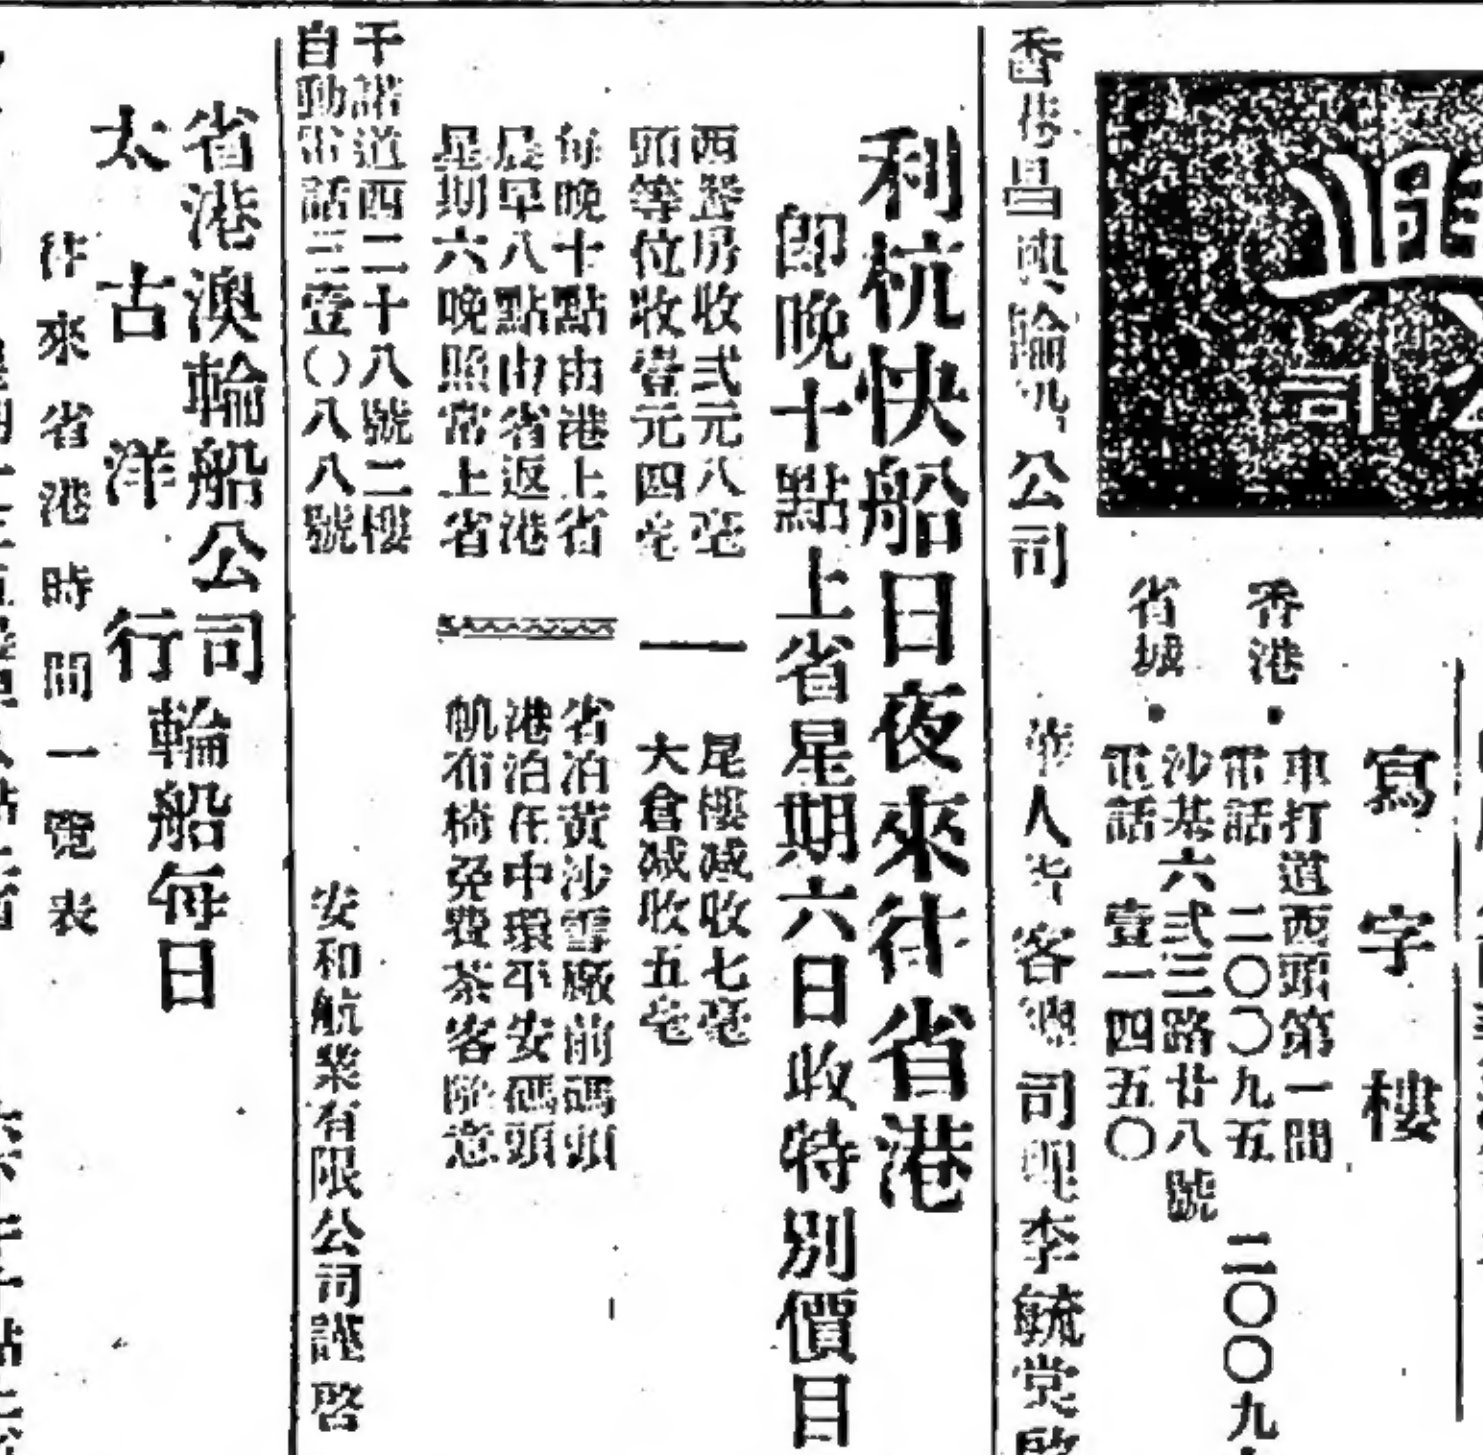 興
公司
寫字樓
香港•車打道西頭第一間
電話 二〇〇九五 二〇〇九
省城•沙基六弍三路廿八號
電話 壹一四五〇
香港昌興輪船公司 華人 客 司理李毓棠啟
利杭快船日夜來往省港
即晚十點上省星期六日收特別價目
西餐房收弍元八毫
頭等位收壹元四毫
尾樓減收七毫
大倉減收五毫
每晚十點由港上省
晨早八點由省返港
星期六晚照常上省
省泊黃沙雪廠前碼頭
港泊在中環平安碼頭
帆布椅免費茶客隨意
干諾道西二十八號二樓
自動電話三壹〇八八號
安和航業有限公司謹啓
省港澳輪船公司
太古洋行
輪船每日
往來省港時間一覽表